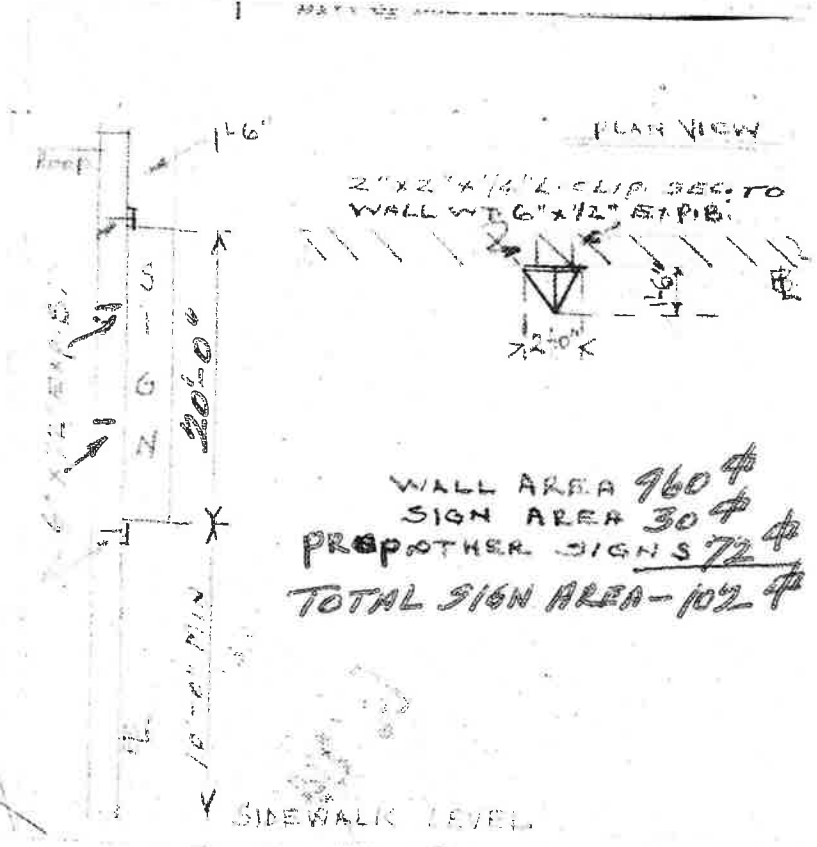 1'-6"
PLAN VIEW
ROOF
2"x2"x1/4" L CLIP SEC. TO
WALL WT 6"x1/2" EXP.B.
S
I
G
N
20'-0"
6"x1/2" EXP.B.
1'-6"
2'-0"
WALL AREA 960 #
SIGN AREA 30 #
PROP OTHER SIGNS 72 #
TOTAL SIGN AREA - 102 #
10'-0" MIN
SIDEWALK LEVEL